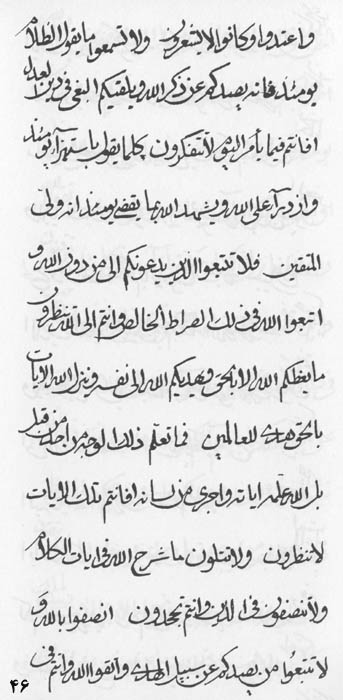 واعتدوا وكانوا لا يشعرون ولا تسمعوا ما يقول الظلام
يومئذ فانه يصدكم عن ذكر الله ويلقيكم البغي في دين العدل
افانتم فيما يأمر الهي لا تتفكرون كلما يقول باستهزآء يومئذ
وازدرآء على الله ويشهد الله بما يقضي يومئذ انه ولي
المتقين فلا تتبعوا الذين يدعونكم الى من دون الله و
اتبعوا الله في ذلك الصراط الخالص وانتم الى الله تنظرون
ما يعظكم الله الا بالحق ويهديكم الله الى نفسه وينزل الله الايات
بالحق هدى للعالمين فما تعلم ذلك الوجه من احد من قبل
بل الله علمه اياته واجرى من لسانه افانتم بتلك الايات
لا تنظرون ولا تتلون ما شرح الله في ايات الكلام
ولا تنصفون في الدين وانتم تجحدون انصفوا بالله و
لا تتبعوا من يصدكم عن سبيل الهدى واتقوا الله وانتم في
۴۶